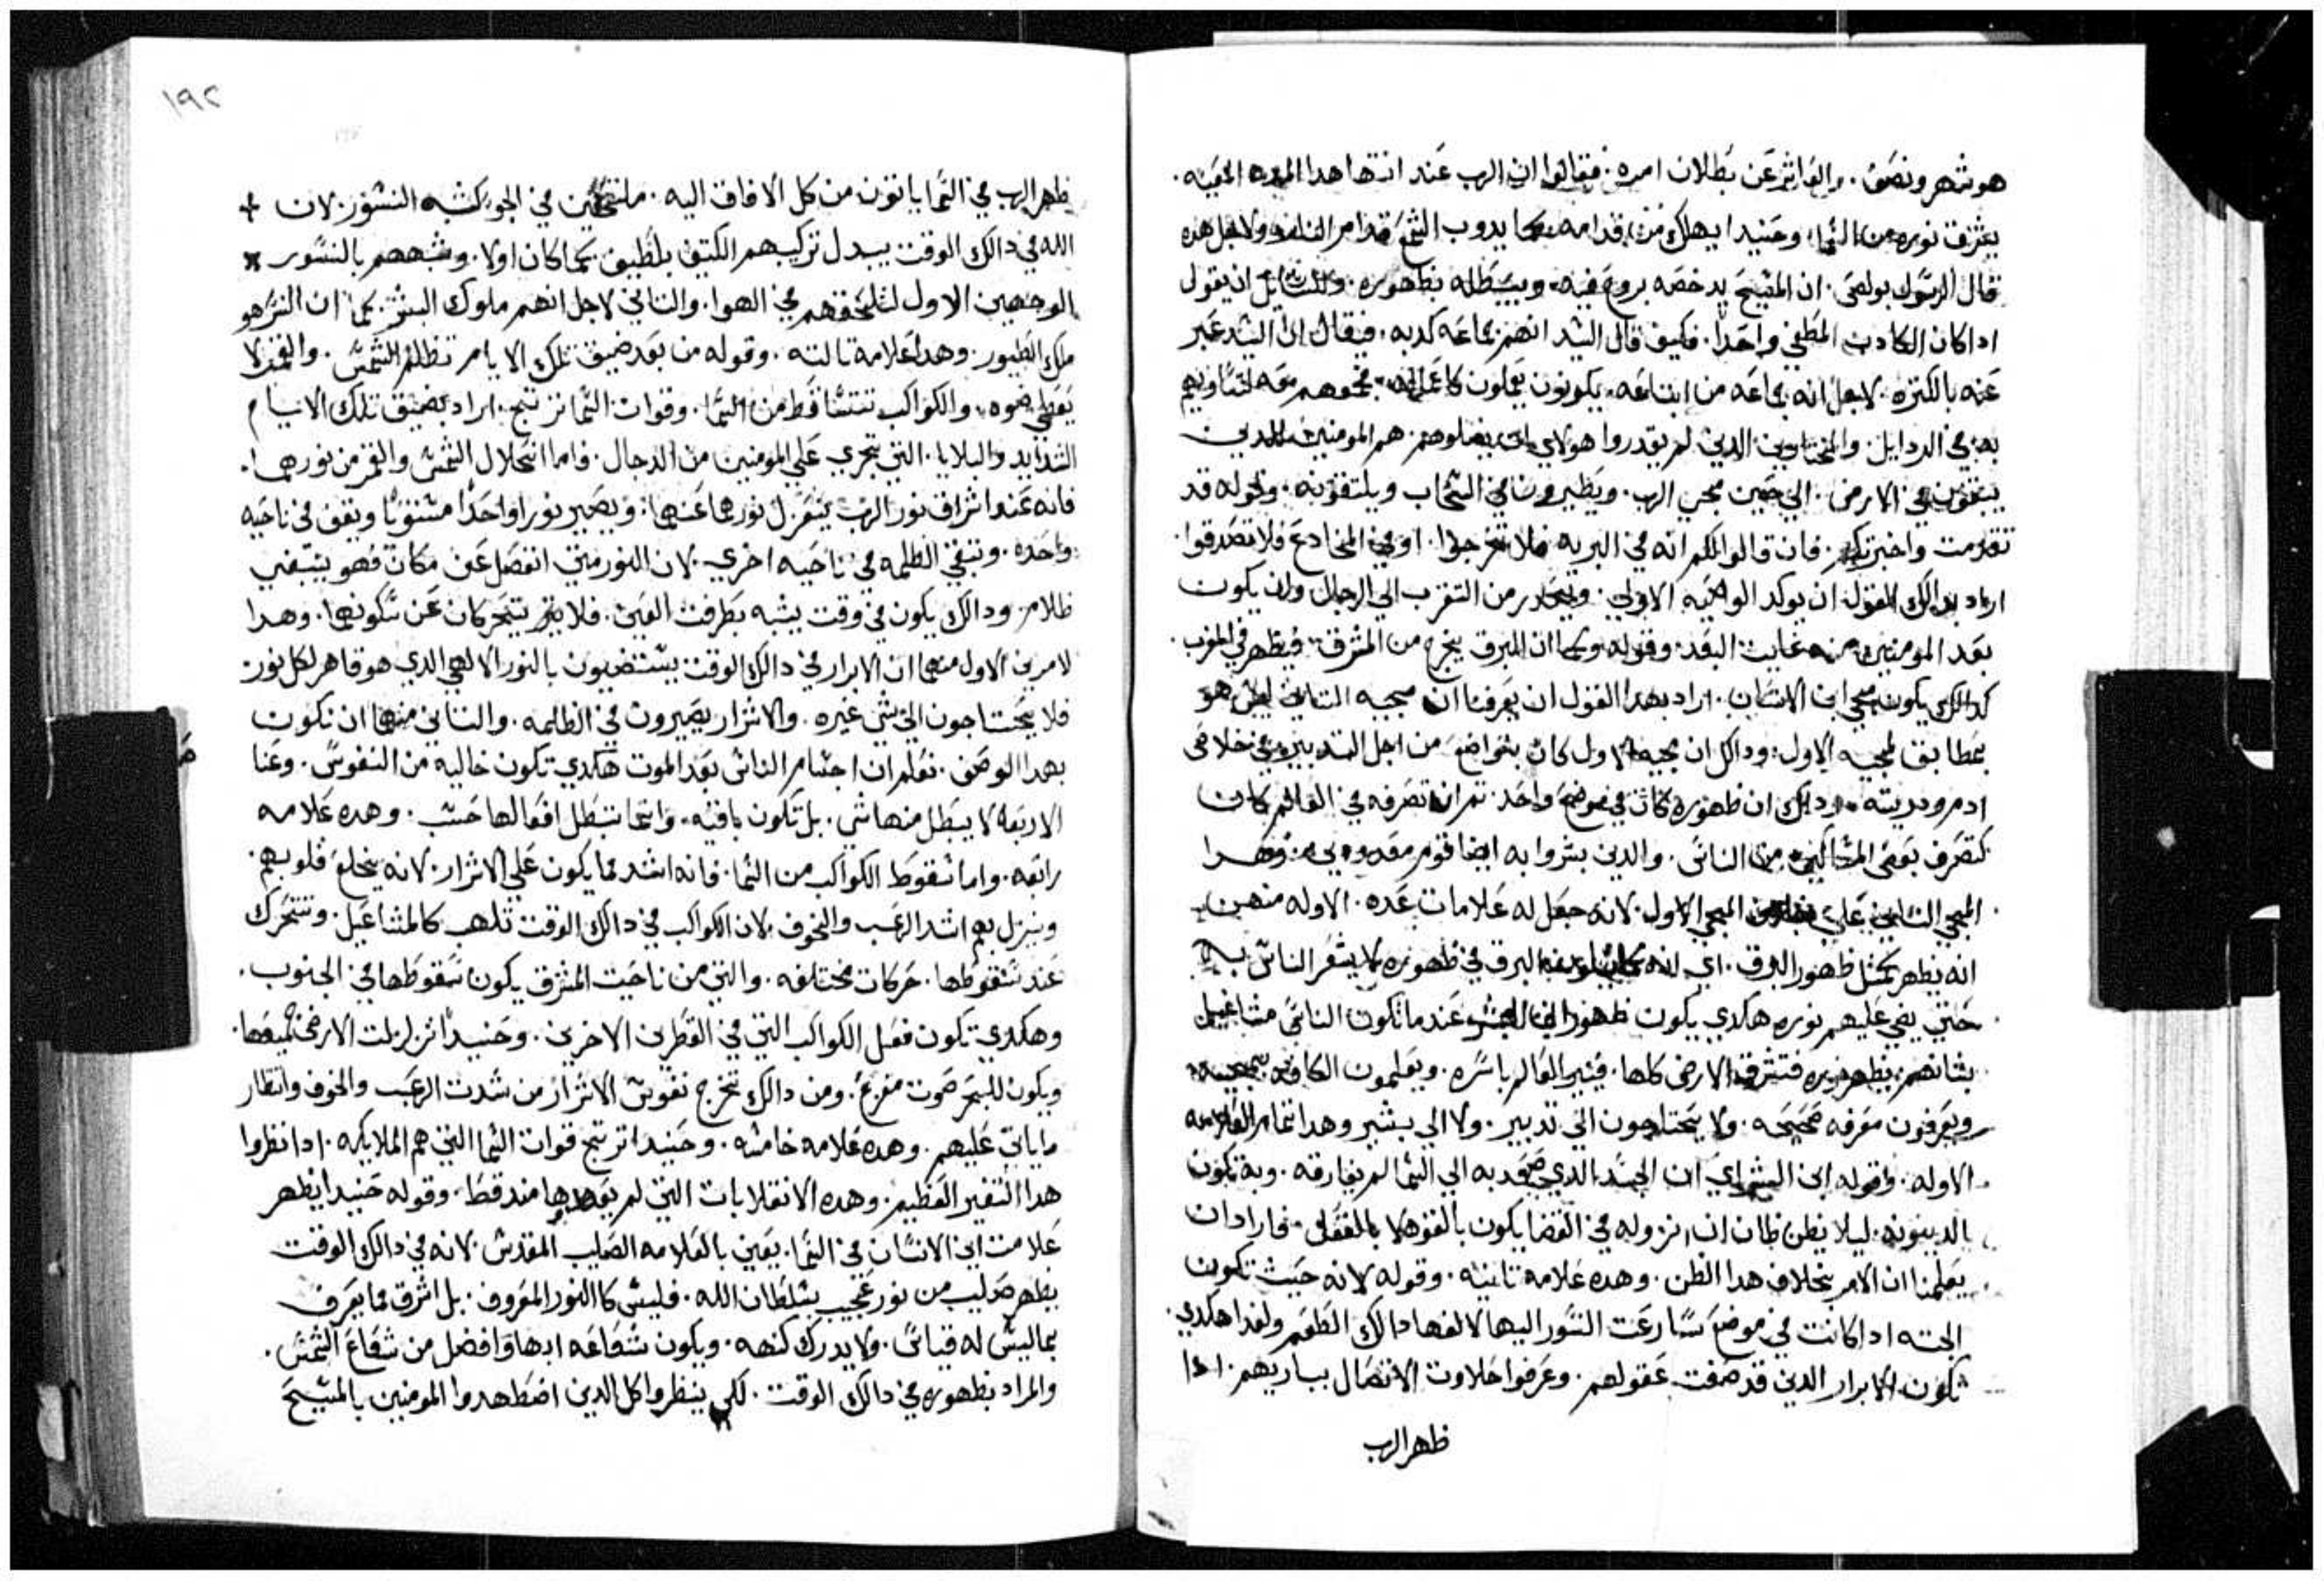 هو شهر ونصف. والفاتر عن بطلان امره. فقالوا ان الرب عند انتها هدا المده المعينه.
يشرق نوره من السما، وحنيدا يهلك من قدامه كما يدوب الشمع قدام النار ولاجل هده
قال الرسول بولص. ان المسيح يدخضه بروح فيه. ويبطله بظهوره. وللسايل ان يقول
ادا كان الكادب المطغي واحدا. فكيف قال السيد انهم جماعه كدبه. فيقال ان السيد عبر
عنه بالكتره. لاجل انه جماعه من اتباعه. يكونون يعملون كاعماله. فجمعهم معه لتساويهم
به في الردايل. والمختارين الدين لم يقدروا هولاي ان يضلوهم. هم المومنين الدين
يبقون في الارض. الي حين مجي الرب. ويطيرون في السحاب ويلتقونه. وقوله قد
تقدمت واخبرتكم. فان قالوا لكم انه في البريه فلا تخرجوا. او في المخادع فلا تصدقوا.
اراد بدالك القول ان يوكد الوصيه الاولي. ويحدر من التقرب الي الدجال وان يكون
بعد المومنين منه غايت البعد. وقوله وكما ان البرق يخرج من المشرق. فيظهر في المغرب.
كدالك يكون مجي ابن الانسان. اراد بهدا القول ان يعرفنا ان مجيه التاني ليس هو
بمطابق لمجيه الاول. ودالك ان مجيه الاول كان بتواضع من اجل التدبير في خلاص
ادم ودريته. ودلك ان ظهوره كان في موضع واحد. تم ان تصرفه في العالم كان
كتصرف بعض المساكين من الناس. والدين بشروا به ايضا قوم معدودين. وهدا
المجي التاني علي خلاف المجي الاول. لانه جعل له علامات عده. الاوله منهن
انه يظهر كمثل ظهور البرق. اي انه كما البرق في ظهوره لا يشعر الناس به
حتي يضي عليهم نوره هكدي يكون ظهور ابن البشر عند ما تكون الناس مشاغيل
بشانهم. يظهر نوره فتشرق الارض كلها. فينير العالم باسره. ويعلمون الكافه بمجيه
ويعرفون معرفه صحيحه. ولا يحتاجون الي تدبير. ولا الي بشير وهدا تمام العلامه
الاوله. وقوله ابن البشر اي ان الجسد الدي صعد به الي السما لم يفارقه. وبه تكون
الدينونه. ليلا يظن ظان ان نزوله في القضا يكون بالقوه لا بالفعل. فاراد ان
يعلمنا ان الامر بخلاف هدا الظن. وهده علامه تانيه. وقوله لانه حيث تكون
الجته ادا كانت في موضع سارعت النسور اليها لالفها دالك الطعم ولغدا هكدي.
تكون الابرار الدين قد صفت عقولهم. وعرفوا حلاوت الاتصال بباريهم. ادا
ظهر الرب
١٩٢
ظهر الرب في السما ياتون من كل الافاق اليه. ملتحقين في الجو كشبه النسور. لان
الله في دالك الوقت يبدل تركيبهم الكتيف بلطيف كما كان اولا. وشبههم بالنسور
لوجهين الاول لتلحقهم في الهوا. والتاني لاجل انهم ملوك البشر. كما ان النسر هو
ملك الطيور. وهدا علامة تالته. وقوله من بعد ضيق تلك الايام تظلم الشمس. والقمر لا
يعطي ضوه. والكواكب تتساقط من السما. وقوات السما ترتج. اراد بضيق تلك الايام
الشدايد والبلايا. التي تجري علي المومنين من الدجال. فاما اضمحلال الشمس والقمر من نورهما.
فانه عند اشراق نور الرب ينعزل نورهما عنهما. ويصير نورا واحدا مستويا ويقف في ناحيه
واحده. وتبقي الظلمه في ناحيه اخري. لان النور متي انفصل عن مكان فهو يبقي
ظلام. ودالك يكون في وقت يشبه بطرفت العين. فلا يتحركان عن سكونهما. وهدا
لامرين الاول منهما ان الابرار في دالك الوقت يستضيون بالنور الالهي الدي هو قاهر لكل نور
فلا يحتاجون الي شي غيره. والاشرار يصيرون في الظلمه. والتاني منهما ان تكون
بهدا الوصف. نعلم ان اجسام الناس بعد الموت هكدي تكون خاليه من النفوس. وعنا
الاربعه لا يبطل منها شي. بل تكون باقيه. وانما تبطل افعالها حسب. وهده علامه
رابعه. واما سقوط الكواكب من السما. فانه اشد مما يكون علي الاشرار. لانه يخلع قلوبهم.
وينزل بهم اشد الرعب والخوف. لان الكواكب في دالك الوقت تلهب كالمشاعيل. وتتحرك
عند سقوطها. حركات مختلفه. والتي من ناحيت المشرق يكون سقوطها في الجنوب.
وهكدي تكون فعل الكواكب التي في القطرين الاخرين. وحنيدا تزلزلت الارض جميعها.
ويكون للبحر صوت مفزع. ومن دالك تخرج نفوس الاشرار من شدت الرعب والخوف وانتظار
ما ياتي عليهم. وهده علامه خامسه. وحنيدا ترتج قوات السما التي هم الملايكه. ادا نظروا
هدا التغير العظيم. وهده الانقلابات التي لم يعهدوها مند قط. وقوله حنيدا يظهر
علامت ابن الانسان في السما. يعني بالعلامه الصليب المقدس. لانه في دالك الوقت
يظهر صليب من نور عجيب بسلطان الله. فليس كالنور المعروف. بل اشرق مما يعرف
بما ليس له قياس. ولا يدرك كنهه. ويكون شعاعه ابها وافضل من شعاع الشمس.
والمراد بظهوره في دالك الوقت. لكي ينظروا كل الدين اضطهدوا المومنين بالمسيح